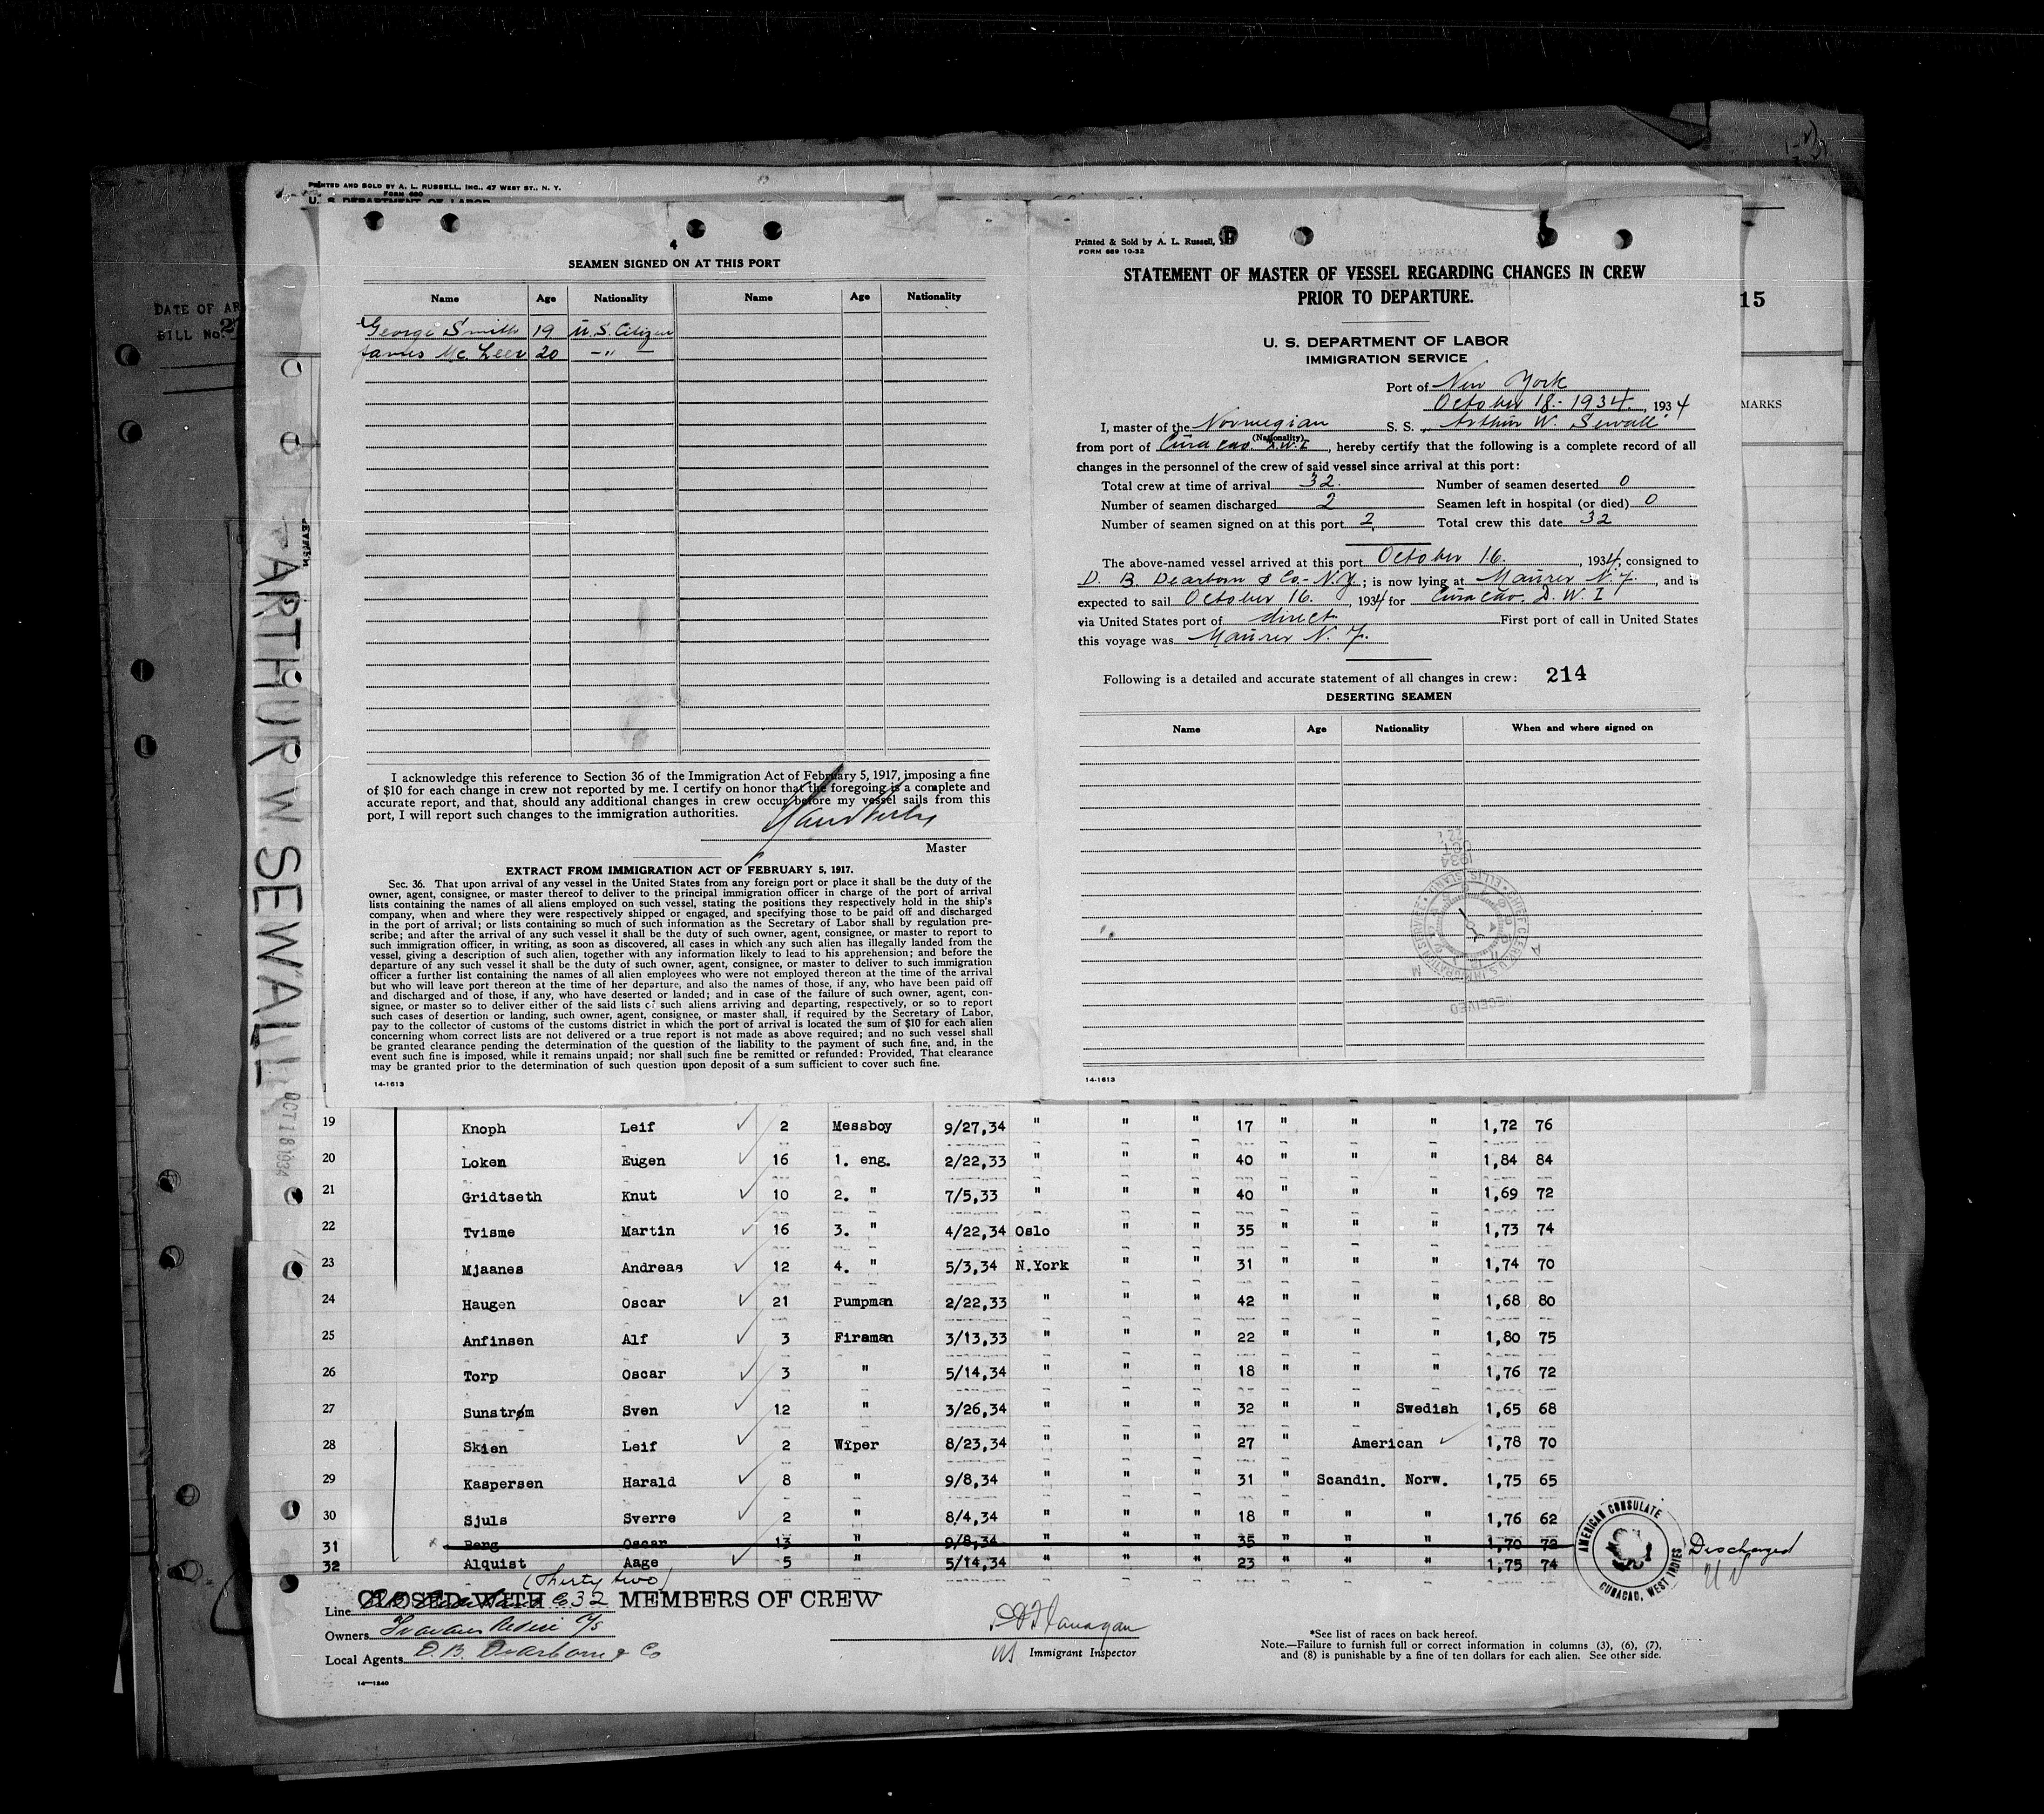 PRINTED AND SOLD BY A. L. RUSSELL, INC., 47 WEST ST., N. Y.
FORM 680
U. S. DEPARTMENT OF LABOR
DATE OF AR
BILL No. 2
15
MARKS
ARTHUR W. SEWALL
OCT 18 1934
4
SEAMEN SIGNED ON AT THIS PORT
Name Age Nationality Name Age Nationality
George Smith 19 U.S. Citizen
James Mc. Leer 20 -"-
I acknowledge this reference to Section 36 of the Immigration Act of February 5, 1917, imposing a fine
of $10 for each change in crew not reported by me. I certify on honor that the foregoing is a complete and
accurate report, and that, should any additional changes in crew occur before my vessel sails from this
port, I will report such changes to the immigration authorities.
Master
EXTRACT FROM IMMIGRATION ACT OF FEBRUARY 5, 1917.
Sec. 36. That upon arrival of any vessel in the United States from any foreign port or place it shall be the duty of the
owner, agent, consignee, or master thereof to deliver to the principal immigration officer in charge of the port of arrival
lists containing the names of all aliens employed on such vessel, stating the positions they respectively hold in the ship's
company, when and where they were respectively shipped or engaged, and specifying those to be paid off and discharged
in the port of arrival; or lists containing so much of such information as the Secretary of Labor shall by regulation pre-
scribe; and after the arrival of any such vessel it shall be the duty of such owner, agent, consignee, or master to report to
such immigration officer, in writing, as soon as discovered, all cases in which any such alien has illegally landed from the
vessel, giving a description of such alien, together with any information likely to lead to his apprehension; and before the
departure of any such vessel it shall be the duty of such owner, agent, consignee, or master to deliver to such immigration
officer a further list containing the names of all alien employees who were not employed thereon at the time of the arrival
but who will leave port thereon at the time of her departure, and also the names of those, if any, who have been paid off
and discharged and of those, if any, who have deserted or landed; and in case of the failure of such owner, agent, con-
signee, or master so to deliver either of the said lists of such aliens arriving and departing, respectively, or so to report
such cases of desertion or landing, such owner, agent, consignee, or master shall, if required by the Secretary of Labor,
pay to the collector of customs of the customs district in which the port of arrival is located the sum of $10 for each alien
concerning whom correct lists are not delivered or a true report is not made as above required; and no such vessel shall
be granted clearance pending the determination of the question of the liability to the payment of such fine, and, in the
event such fine is imposed, while it remains unpaid; nor shall such fine be remitted or refunded: Provided, That clearance
may be granted prior to the determination of such question upon deposit of a sum sufficient to cover such fine.
14-1613
Printed & Sold by A. L. Russell,
FORM 689 10-32
STATEMENT OF MASTER OF VESSEL REGARDING CHANGES IN CREW
PRIOR TO DEPARTURE.
U. S. DEPARTMENT OF LABOR
IMMIGRATION SERVICE
Port of New York
October 18.- 1934., 1934
I, master of the Norwegian S. S. "Arthur W. Sewall"
(Nationality)
from port of Curacao. D.W.I., hereby certify that the following is a complete record of all
changes in the personnel of the crew of said vessel since arrival at this port:
Total crew at time of arrival 32. Number of seamen deserted 0
Number of seamen discharged 2 Seamen left in hospital (or died) 0
Number of seamen signed on at this port 2. Total crew this date 32
The above-named vessel arrived at this port October 16., 1934, consigned to
D. B. Dearborn & Co.- N.Y.; is now lying at Maurer N.J., and is
expected to sail October 16., 1934 for Curacao. D. W. I
via United States port of direct First port of call in United States
this voyage was Maurer N. J.
Following is a detailed and accurate statement of all changes in crew: 214
DESERTING SEAMEN
Name Age Nationality When and where signed on
RECEIVED
14-1613
19 Knoph Leif 2 Messboy 9/27,34 " " " 17 " " " 1,72 76
20 Loken Eugen 16 1. eng. 2/22,33 " " " 40 " " " 1,84 84
21 Gridtseth Knut 10 2. " 7/5,33 " " " 40 " " " 1,69 72
22 Tvisme Martin 16 3. " 4/22,34 Oslo " " 35 " " " 1,73 74
23 Mjaanes Andreas 12 4. " 5/3,34 N.York " " 31 " " " 1,74 70
24 Haugen Oscar 21 Pumpman 2/22,33 " " " 42 " " " 1,68 80
25 Anfinsen Alf 3 Fireman 3/13,33 " " " 22 " " " 1,80 75
26 Torp Oscar 3 " 5/14,34 " " " 18 " " " 1,76 72
27 Sunstrøm Sven 12 " 3/26,34 " " " 32 " " Swedish 1,65 68
28 Skien Leif 2 Wiper 8/23,34 " " " 27 " American 1,78 70
29 Kaspersen Harald 8 " 9/8,34 " " " 31 " Scandin. Norw. 1,75 65
30 Sjuls Sverre 2 " 8/4,34 " " " 18 " " " 1,76 62
31 Berg Oscar 13 " 9/8,34 " " " 35 " " " 1,70 72 Discharged
32 Alquist Aage 5 " 5/14,34 " " " 23 " " " 1,75 74
AMERICAN CONSULATE
CURACAO, WEST INDIES
(Thirty two)
CLOSED WITH 32 MEMBERS OF CREW
Line
Owners
Local Agents D. B. Dearborn & Co
Immigrant Inspector
*See list of races on back hereof.
Note.—Failure to furnish full or correct information in columns (3), (6), (7),
and (8) is punishable by a fine of ten dollars for each alien. See other side.
14—1240